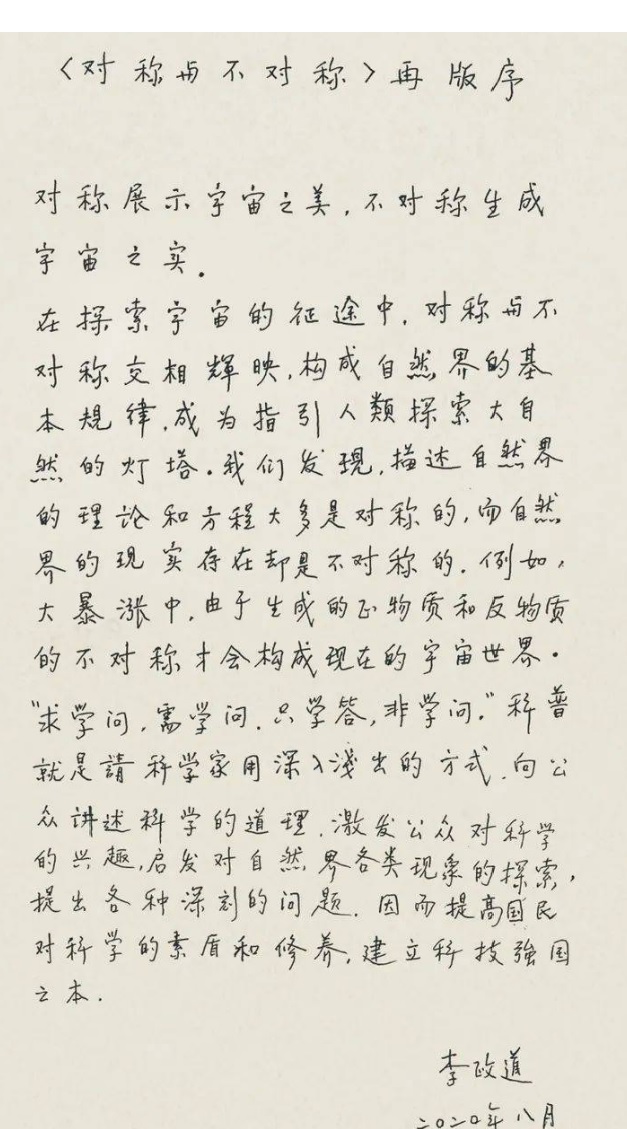 〈对称与不对称〉再版序
对称展示宇宙之美，不对称生成
宇宙之实。
在探索宇宙的征途中，对称与不
对称交相輝映，构成自然界的基
本規律，成为指引人類探索大自
然的灯塔。我们发现，描述自然界
的理论和方程大多是对称的，而自然
界的现实存在却是不对称的。例如，
大暴涨中，由于生成的正物质和反物质
的不对称才会构成现在的宇宙世界。
“求学问，需学问，只学答，非学问。”科普
就是請科学家用深入淺出的方式，向公
众讲述科学的道理，激发公众对科学
的兴趣，启发对自然界各类现象的探索，
提出各种深刻的问题，因而提高国民
对科学的素质和修养，建立科技強国
之本。
李政道
二〇二〇年八月